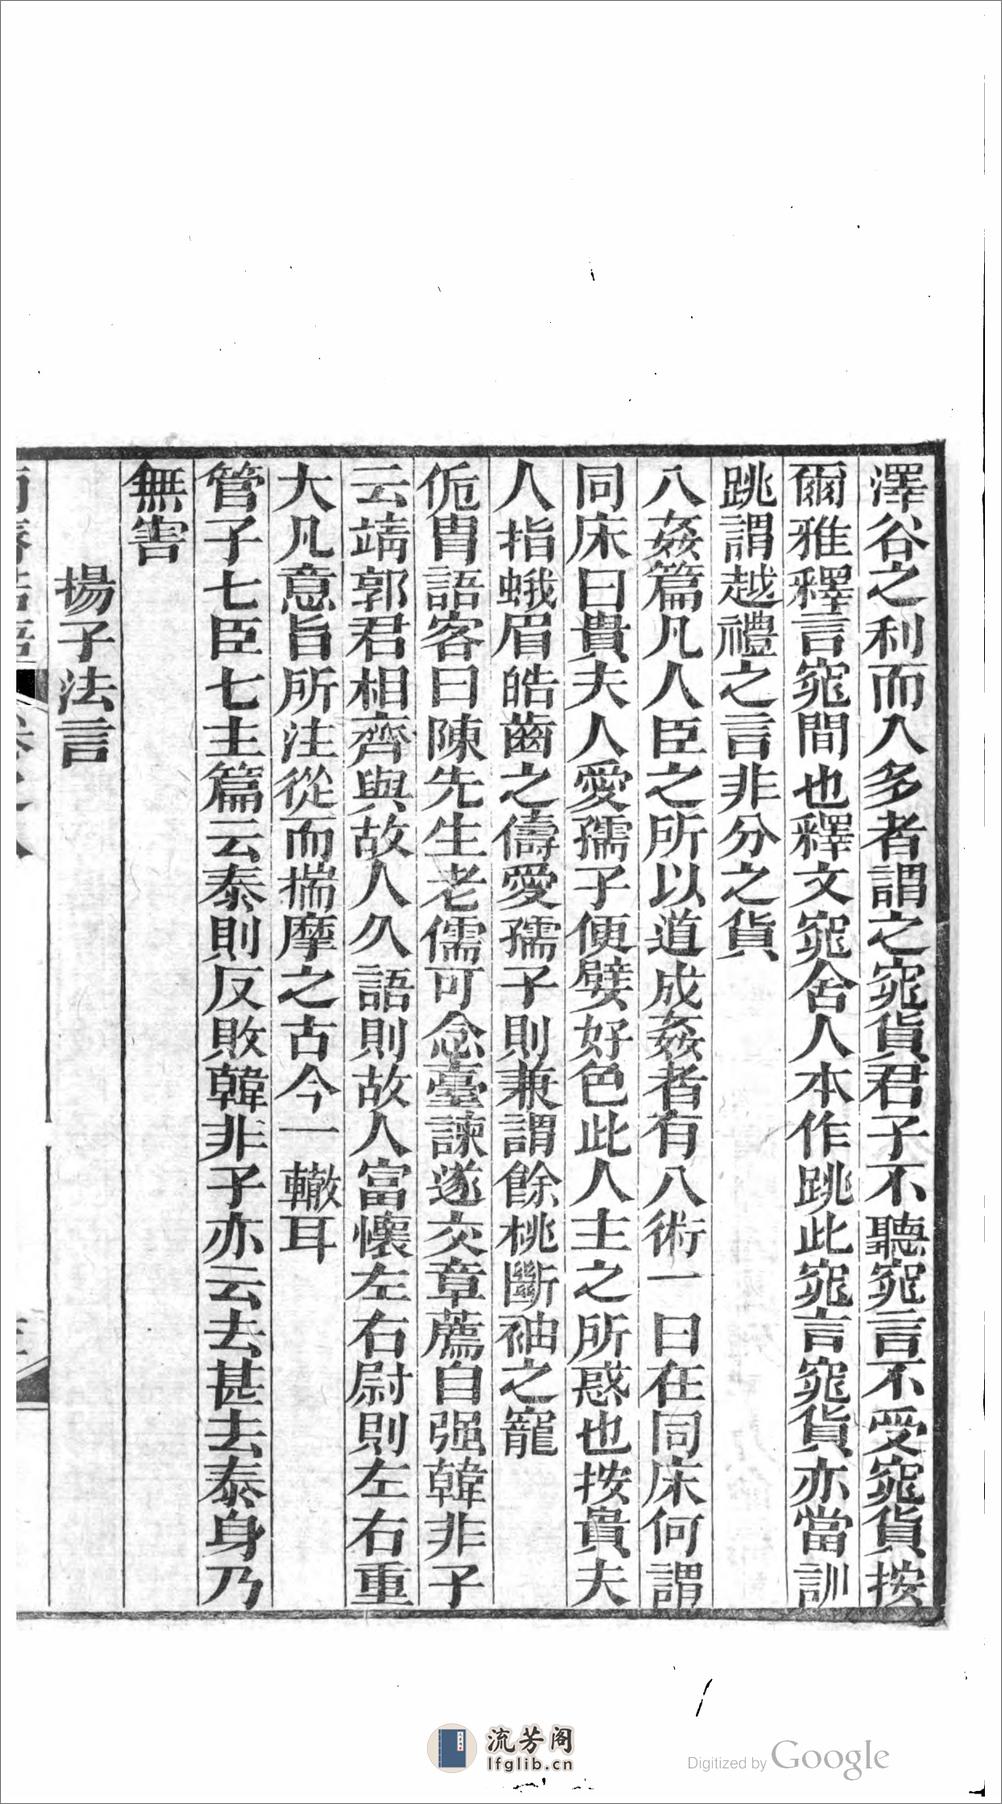 澤谷之利而入多者謂之窕貨君子不聽窕言不受窕貨按
爾雅釋言窕閒也釋文窕舍人本作跳此窕言窕貨亦當訓
跳謂越禮之言非分之貨
八姦篇凡人臣之所以道成姦者有八術一曰在同床何謂
同床曰貴夫人愛孺子便嬖好色此人主之所惑也按貴夫
人指蛾眉皓齒之儔愛孺子則兼謂餘桃斷袖之寵
侂冑語客曰陳先生老儒可念臺諫遂交章薦自强韓非子
云靖郭君相齊與故人久語則故人富懷左右尉則左右重
大凡意旨所注從而揣摩之古今一轍耳
管子七臣七主篇云泰則反敗韓非子亦云去甚去泰身乃
無害
揚子法言
流芳阁
lfglib.cn
Digitized by Google